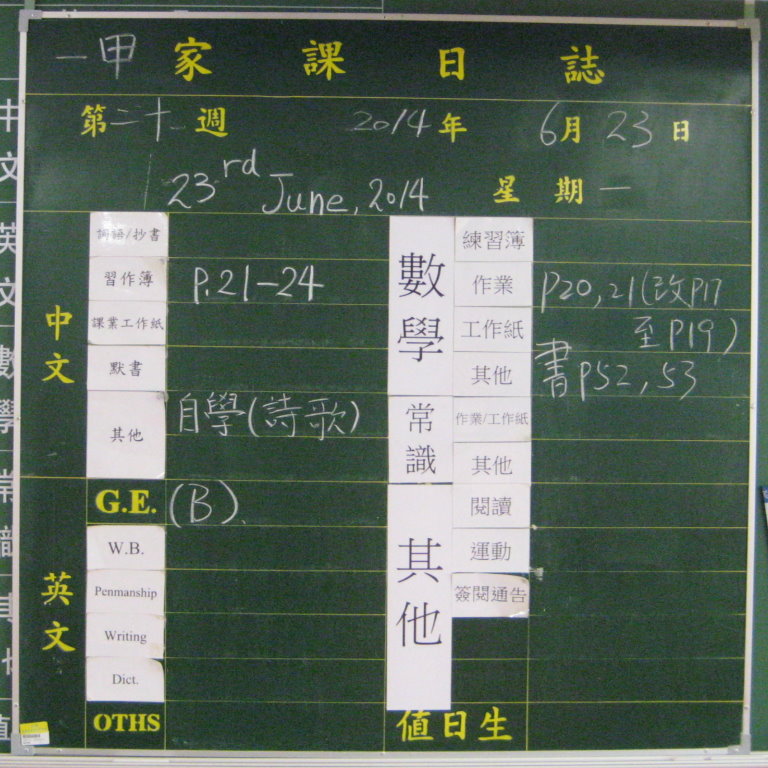 一甲 家課日誌
第二十 週 2014年 6月23日
23rd June, 2014 星期一
中文
詞語/抄書
習作簿 P.21-24
課業工作紙
默書
其他 自學(詩歌)
英文
G.E. (B)
W.B.
Penmanship
Writing
Dict.
OTHS
數學
練習簿
作業 p20,21(改p17
工作紙 至p19)
其他 書p52,53
常識
作業/工作紙
其他
其他
閱讀
運動
簽閱通告
值日生
中文
英文
數學
常識
其他
值